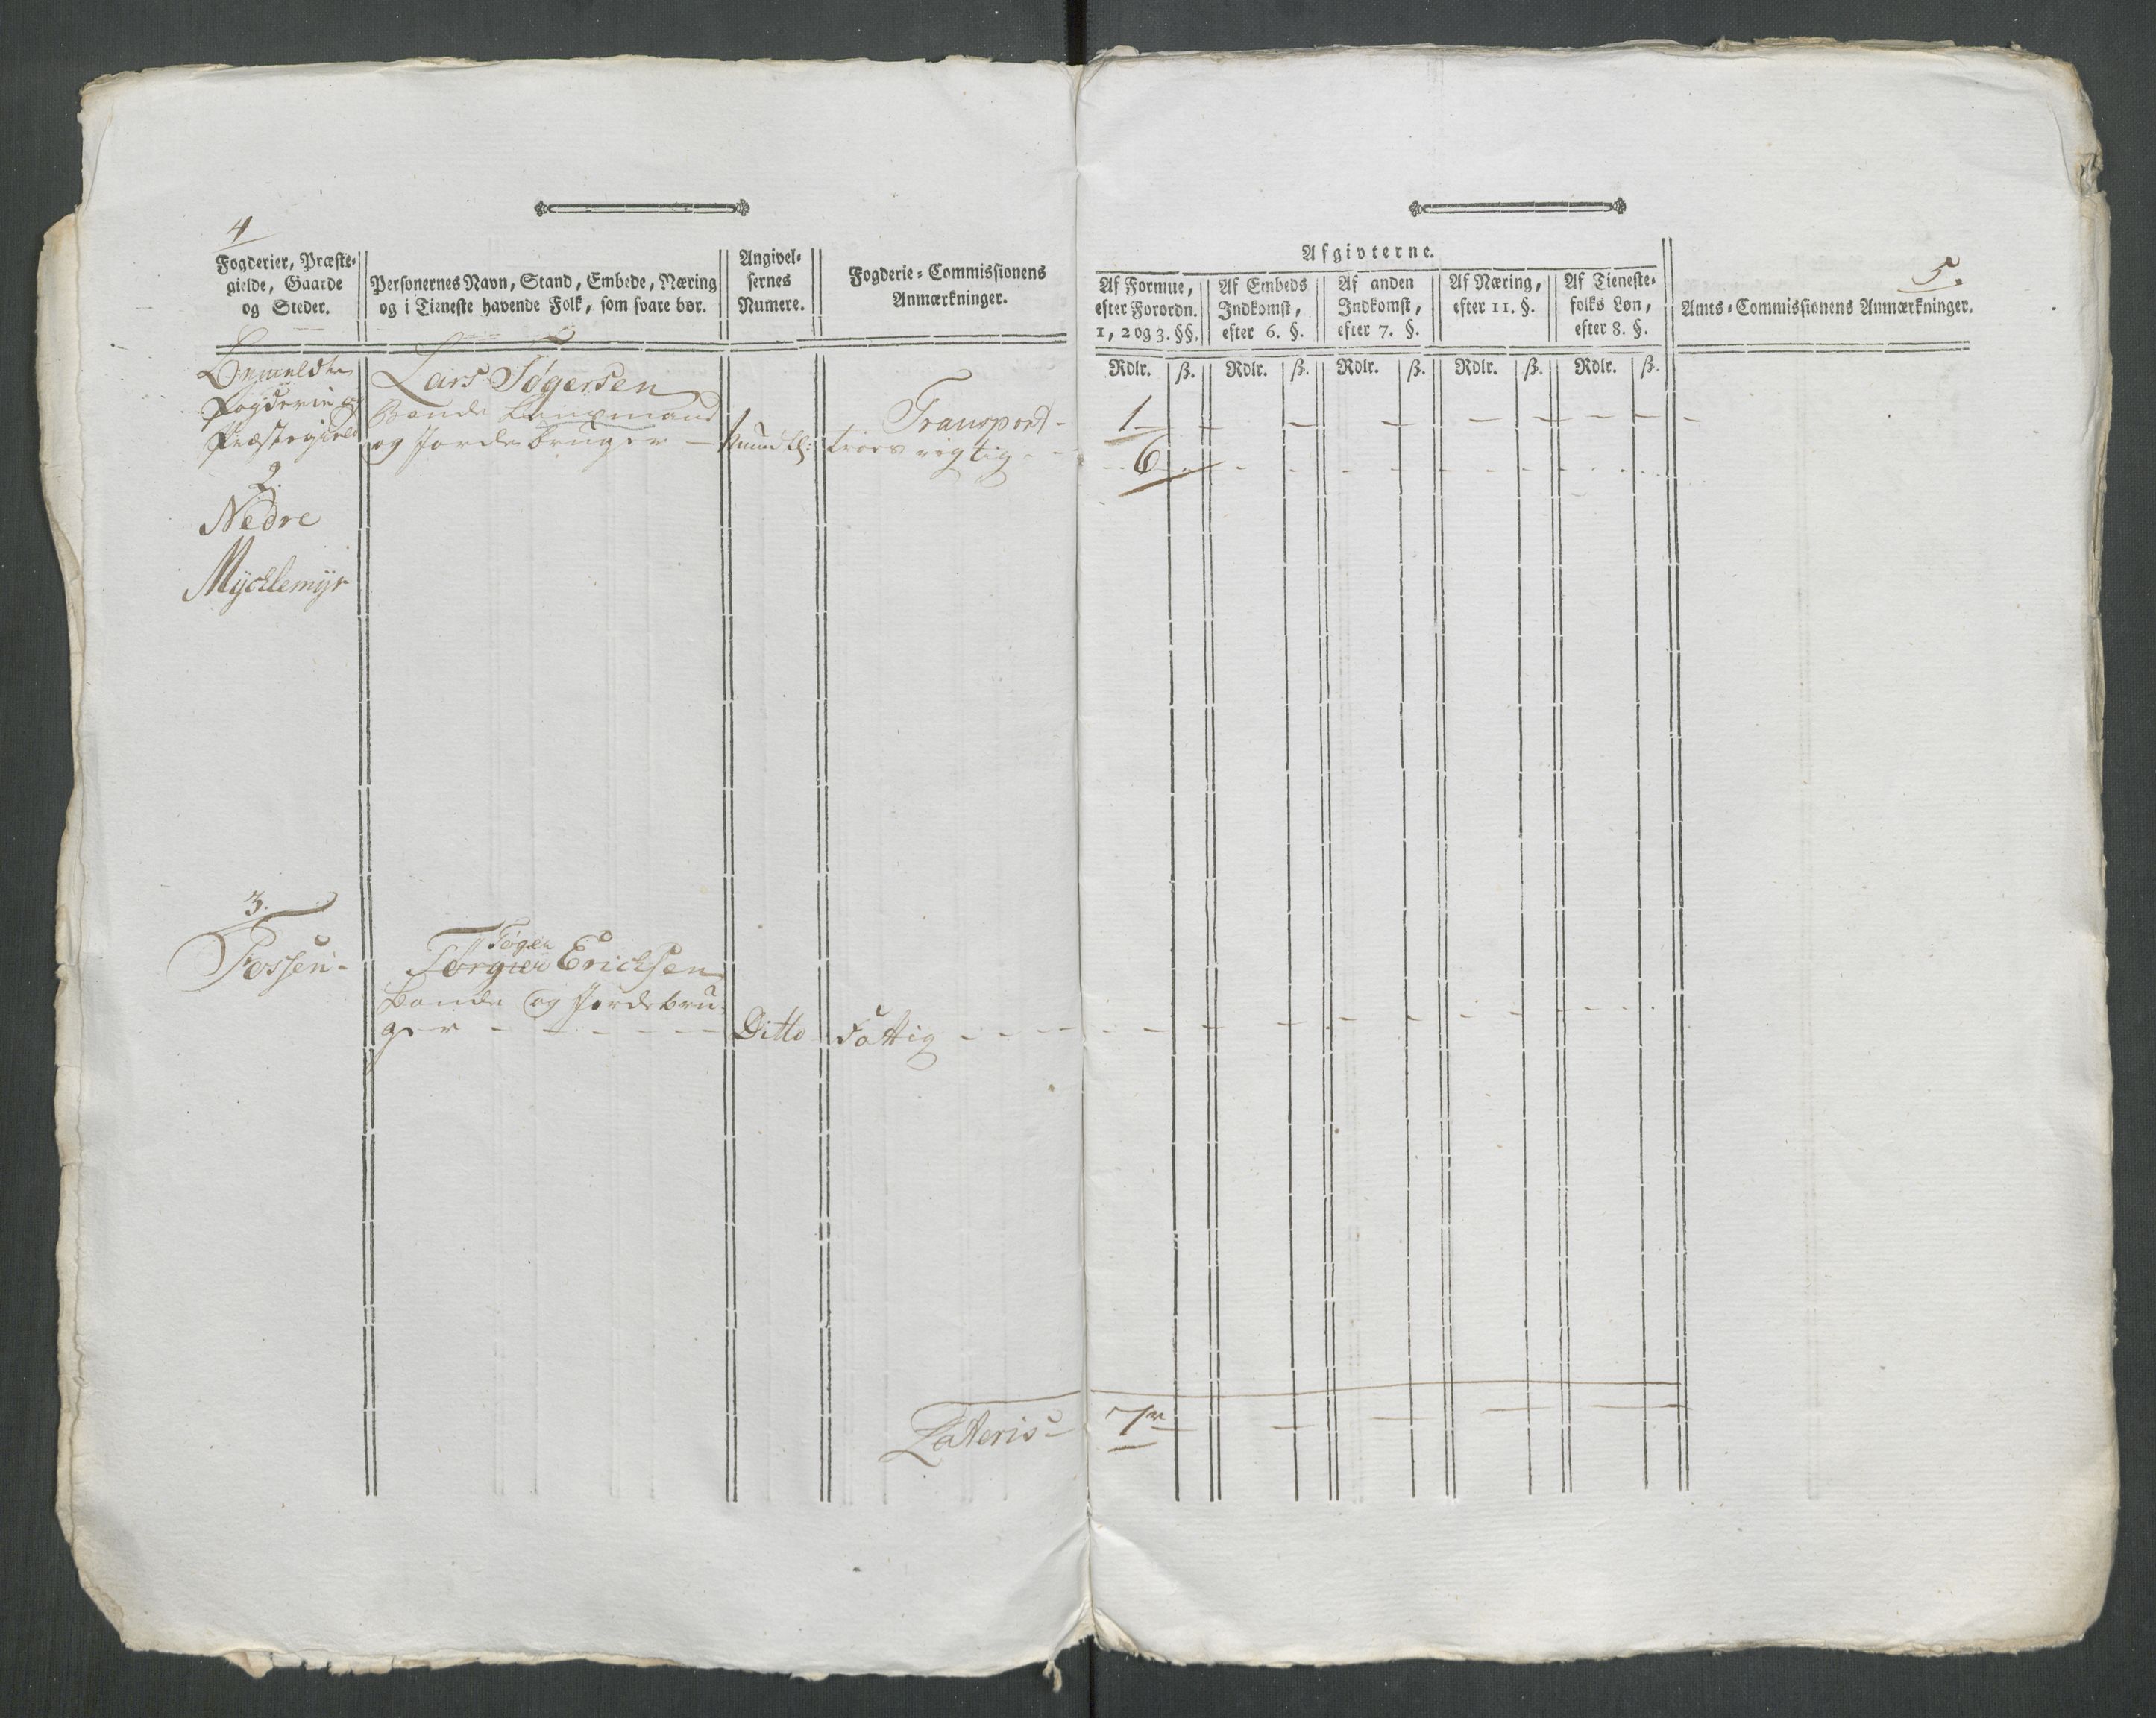 4
Fogderier, Præste-
gielde, Gaarde
og Steder.
Personernes Navn, Stand, Embede, Næring
og i Tieneste havende Folk, som svare bør.
Angivel-
sernes
Numere.
Fogderie-Commissionens
Anmærkninger.
Bemeldte
Fogderie og
Præstegield
2.
Nedre
Mÿcklemÿr
Lars Tøgersen
Bonde Lensmand
og Jordebruger
Mundtl:
Transport-
troes rigtig
3.
Fossen-
Tøger
Tørgier Ericksen
Bonde og Jordebru-
ger
Ditto
Fattig
Lateris
5.
Afgivterne.
Af Formue,
efter Forordn.
1, 2 og 3. §§.
Af Embeds
Indkomst,
efter 6. §.
Af anden
Indkomst,
efter 7. §.
Af Næring,
efter 11. §.
Af Tieneste-
folks Løn,
efter 8. §.
Amts-Commissionens Anmærkninger.
Rdlr. ß. Rdlr. ß. Rdlr. ß. Rdlr. ß. Rdlr. ß.
1
6
7